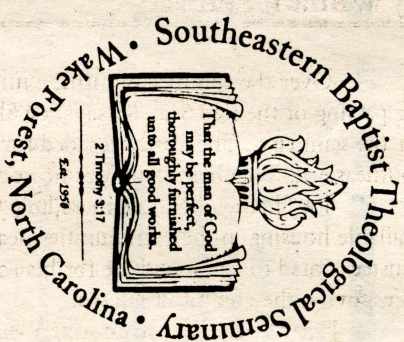 Southeastern Baptist Theological Seminary
• Wake Forest, North Carolina •
That the man of God
may be perfect,
thoroughly furnished
unto all good works.
2 Timothy 3:17
Est. 1950